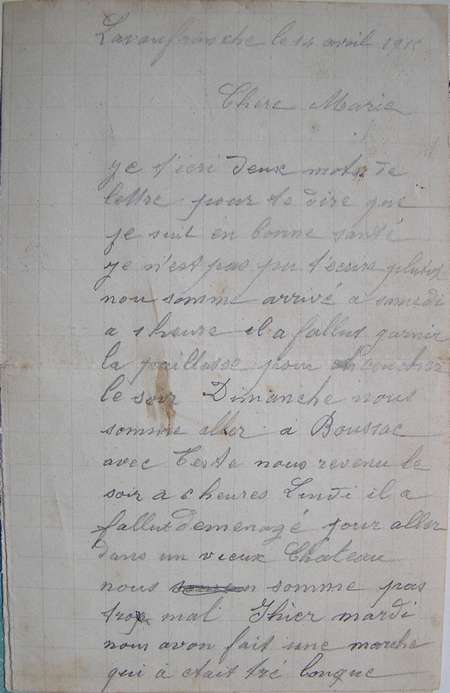 Lavaufranche le 14 avril 1915
Chere Marie
je t'ecri deux mots de
lettre pour te dire que
je suit en bonne santé
je n'est pas pu t'ecrire plutot
nou somme arrivé a samedi
a 1 heure il a fallut garnir
la paillasse pour coucher
le soir Dimanche nous
somme aller a Boussac
avec Teste nous revenu le
soir a 6 heures Lundi il a
fallut demenagé pour aller
dans un vieux Chateau
nous somme pas
trop mal Ihier mardi
nous avon fait une marche
qui a etait tré longue